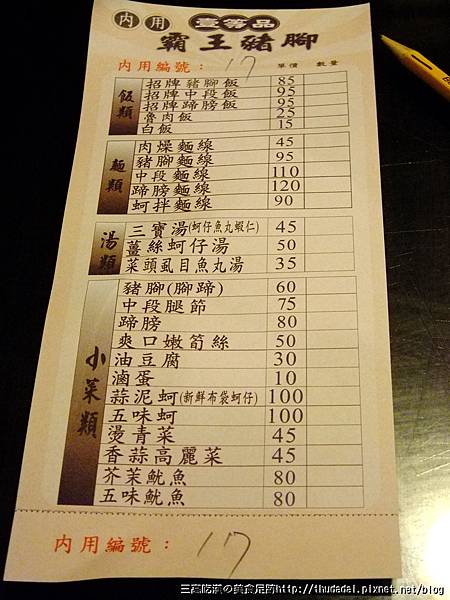 內用 壹等品
霸王豬腳
內用編號： 17 單價 數量
飯類
招牌豬腳飯 85
招牌中段飯 95
招牌蹄膀飯 95
魯肉飯 25
白飯 15
麵類
肉燥麵線 45
豬腳麵線 95
中段麵線 110
蹄膀麵線 120
蚵拌麵線 90
湯類
三寶湯(蚵仔魚丸蝦仁) 45
薑絲蚵仔湯 50
菜頭虱目魚丸湯 35
小菜類
豬腳(腳蹄) 60
中段腿節 75
蹄膀 80
爽口嫩筍絲 50
油豆腐 30
滷蛋 10
蒜泥蚵(新鮮布袋蚵仔) 100
五味蚵 100
燙青菜 45
香蒜高麗菜 45
芥茉魷魚 80
五味魷魚 80
內用編號： 17
http://thudadai.pixnet.net/blog